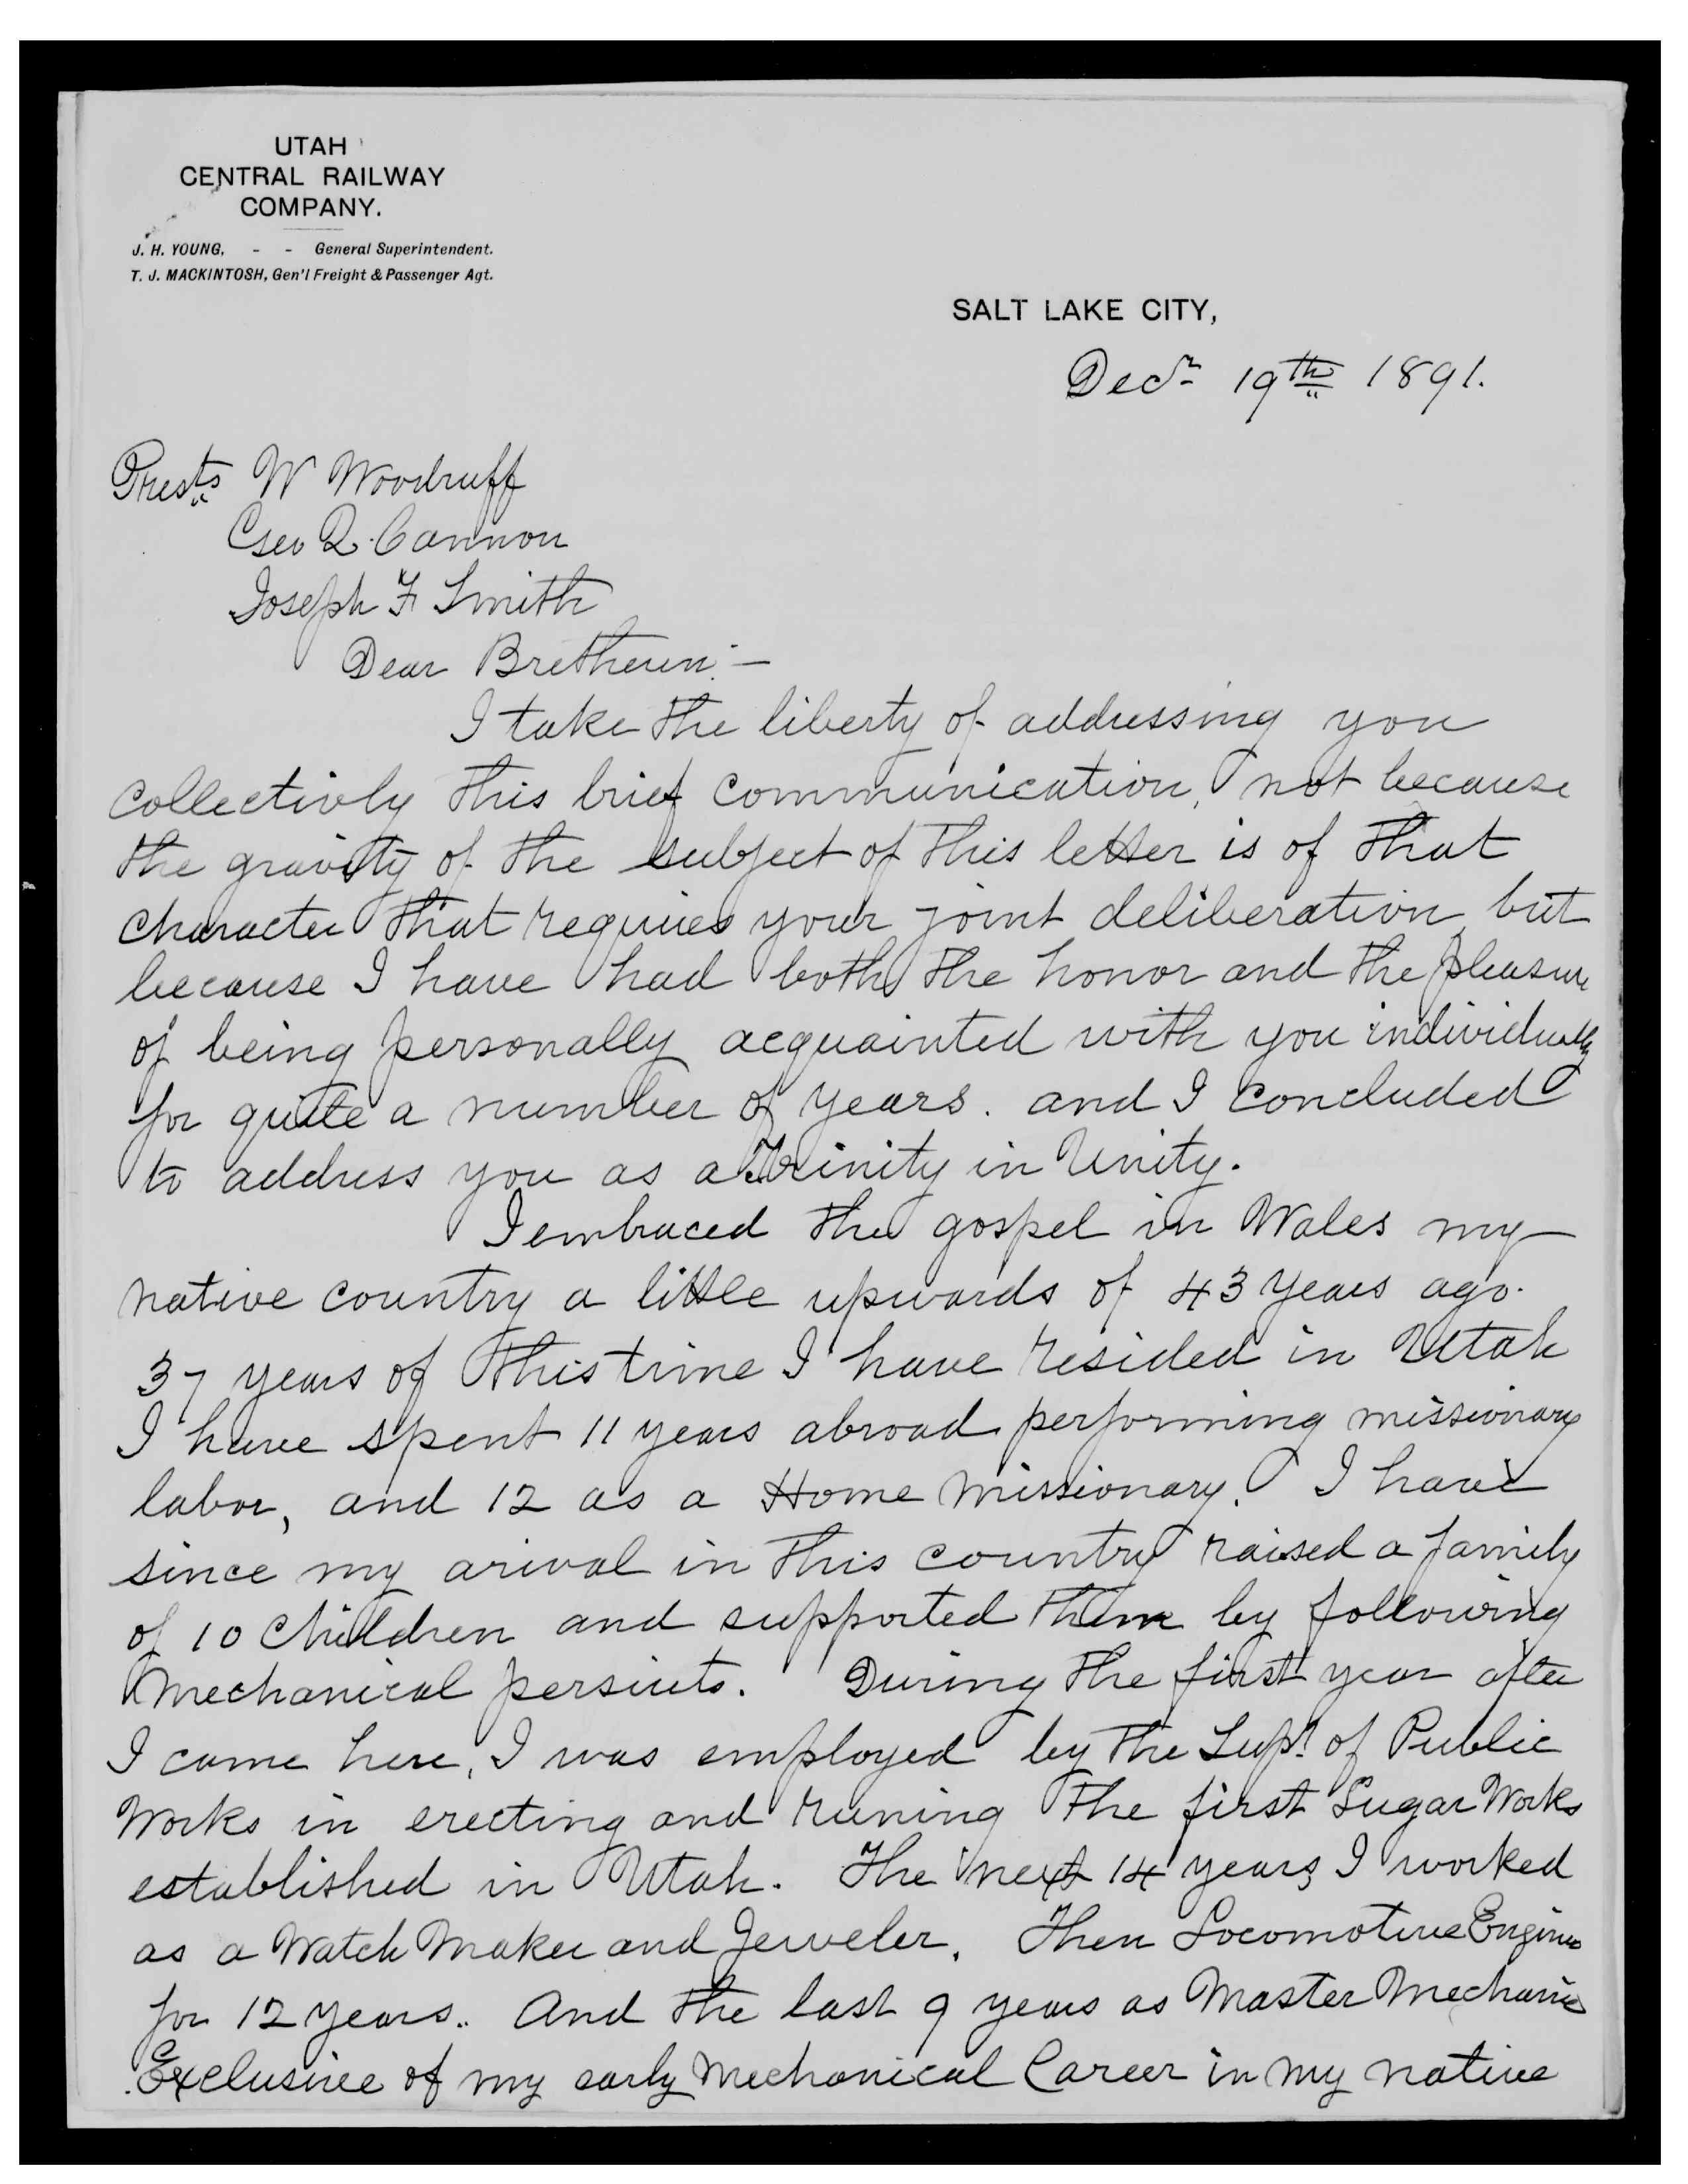 UTAH
CENTRAL RAILWAY
COMPANY.
J. H. YOUNG, - - General Superintendent.
T. J. MACKINTOSH, Gen'l Freight & Passenger Agt.
SALT LAKE CITY,
Decr 19th 1891.
Prests W Woodruff
Geo Q. Cannon
Joseph F Smith
Dear Bretheren:—
I take the liberty of addressing you
collectivly this brief communication, not because
the gravity of the subject of this letter is of that
character that requires your joint deliberation, but
because I have had both the honor and the pleasure
of being personally acquainted with you individually
for quite a number of years. and I concluded
to address you as a Trinity in Unity.
I embraced the gospel in Wales my
native country a little upwards of 43 years ago.
37 years of this time I have resided in Utah
I have spent 11 years abroad performing missionary
labor, and 12 as a Home Missionary. I have
since my arival in this country raised a family
of 10 Children and supported them by following
Mechanical persuits. During the first year after
I came here, I was employed by the Supt. of Public
Works in erecting and runing the first Sugar Works
established in Utah. The next 14 years I worked
as a Watch Maker and Jeweler. Then Locomotive Engineer
for 12 years. And the last 9 years as Master Mechanic
Exclusive of my early Mechanical Career in my native